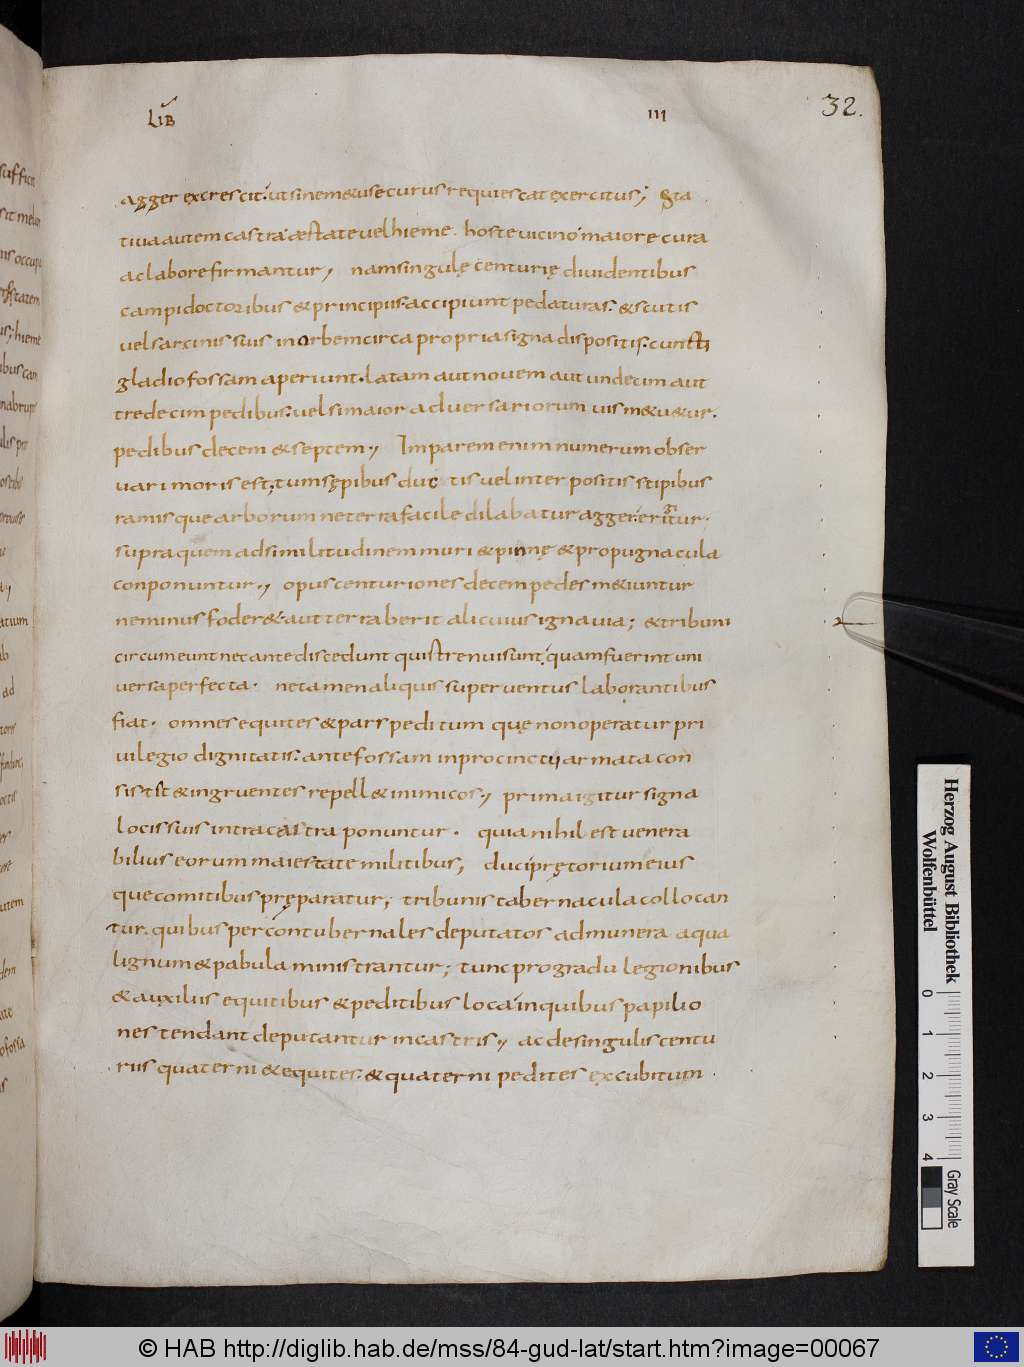 LIB III 32.
agger excrescit. ut sine metu & securus requiescat exercitus; Sta
tiua autem castra æstate uel hieme. hoste uicino maiore cura
ac labore firmantur, nam singulę centurię diuidentibus
campidoctoribus & principiis. accipiunt pedaturas. & scutis
uel sarcinis suis in orbem circa propria signa dispositis. cuncti
gladio fossam aperiunt. latam aut nouem aut undecim aut
tredecim pedibus. uel si maior aduersariorum uis metu&ur.
pedibus decem & septem, Imparem enim numerum obser
uari moris est, tum sępibus duc tis uel interpositis stipibus
ramisque arborum ne terra facile dilabatur agger erigitur.
supra quem ad similitudinem muri & pinnę & propugnacula
conponuntur, opus centuriones decempedes m&iuntur
ne minus foder& aut terra berit alicuius ignauia; & tribuni
circumeunt nec ante discedunt qui strenui sunt, quam fuerint uni
uersa perfecta. ne tamen aliquis superuentus laborantibus
fiat. omnes equites & pars peditum quę non operatur pri
uilegio dignitatis. ante fossam in procinctu armata con
sistit & ingruentes repell& inimicos, prima igitur signa
locis suis intra castra ponuntur. quia nihil est uenera
bilius eorum maiestate militibus, duci prętorium eius
que comitibus pręparatur, tribunis tabernacula collocan
tur. quibus per contubernales deputatos ad munera aqua
lignum & pabula ministrantur; tunc pro gradu legionibus
& auxiliis equitibus & peditibus loca in quibus papilio
nes tendant deputantur in castris, ac de singulis centu
riis quaterni & equites. & quaterni pedites excubitum.
Herzog August Bibliothek
Wolfenbüttel
0 1 2 3 4
Gray Scale
© HAB http://diglib.hab.de/mss/84-gud-lat/start.htm?image=00067